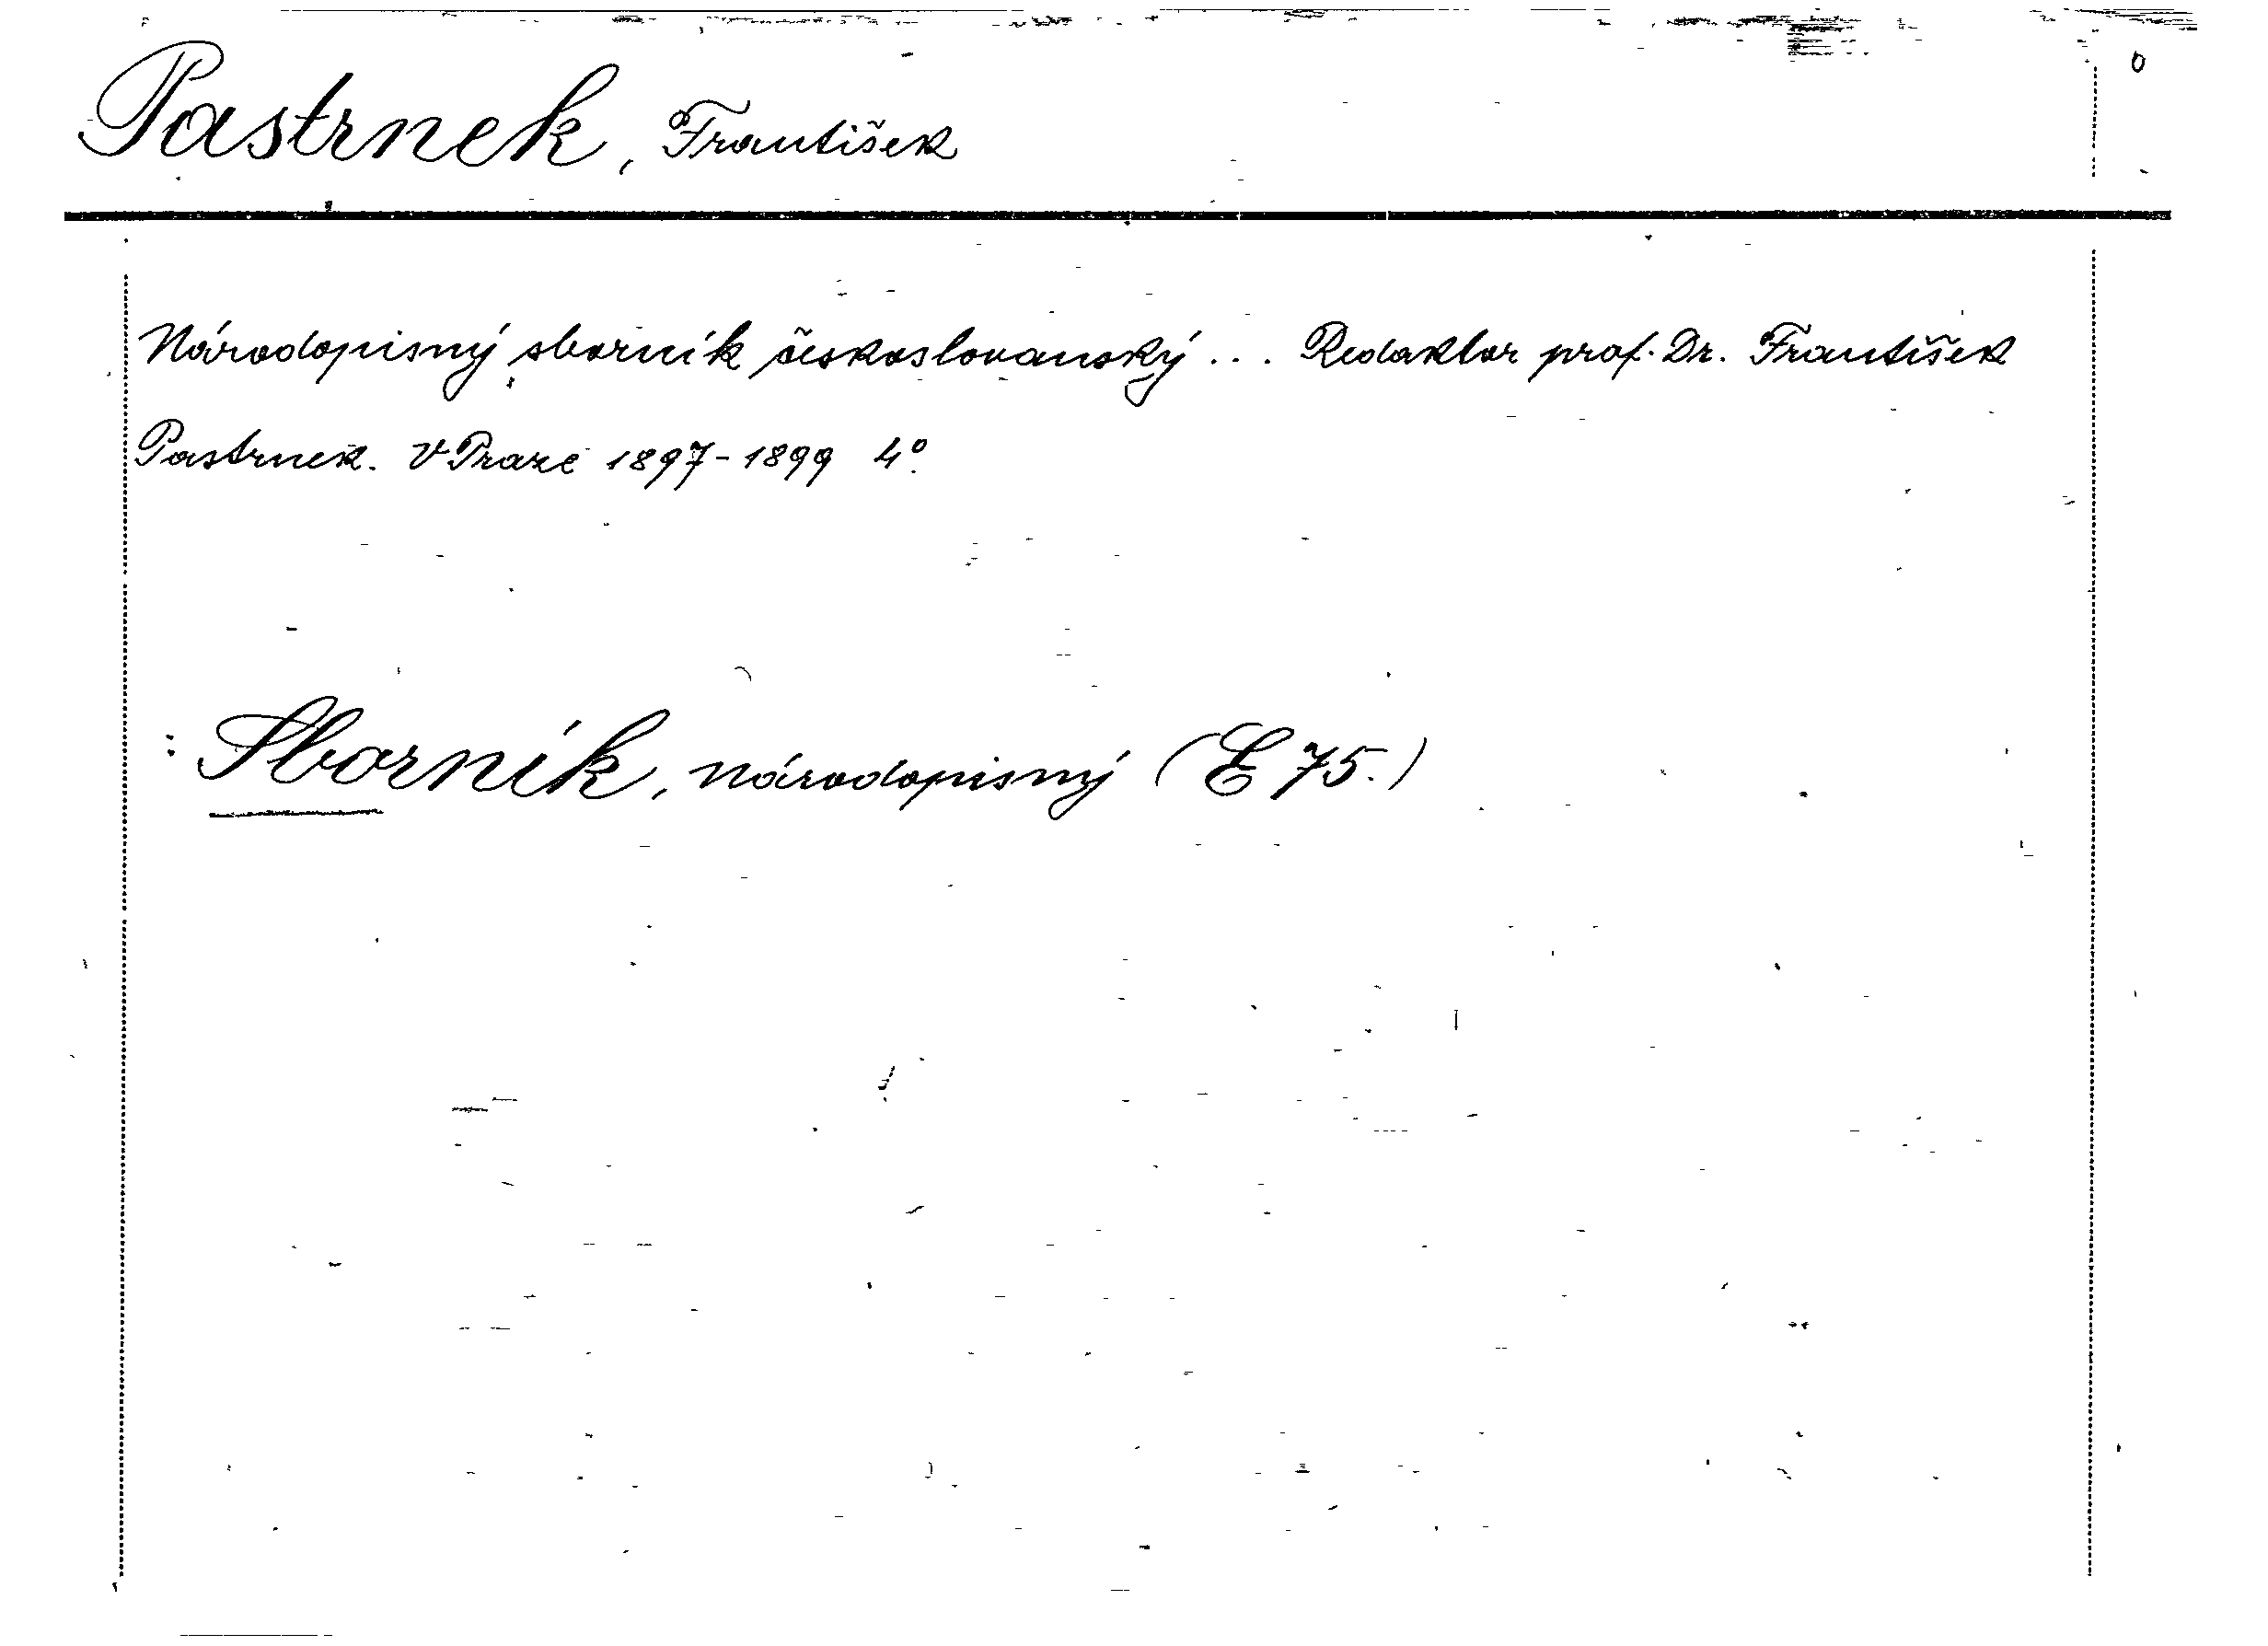 Pastrnek, František
Národopisný sborník českoslovanský... Redaktor prof. Dr. František
Pastrnek. V Praze 1897-1899 4°.
: Sborník, národopisný (E 75.)